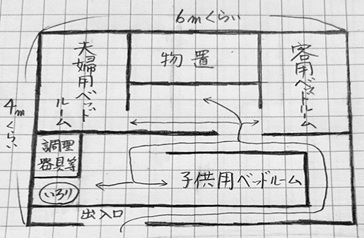 6mくらい
4mくらい
夫婦用ベッド
ルーム
物置
客用ベットルーム
調理
器具等
いろり
子供用ベッドルーム
出入口